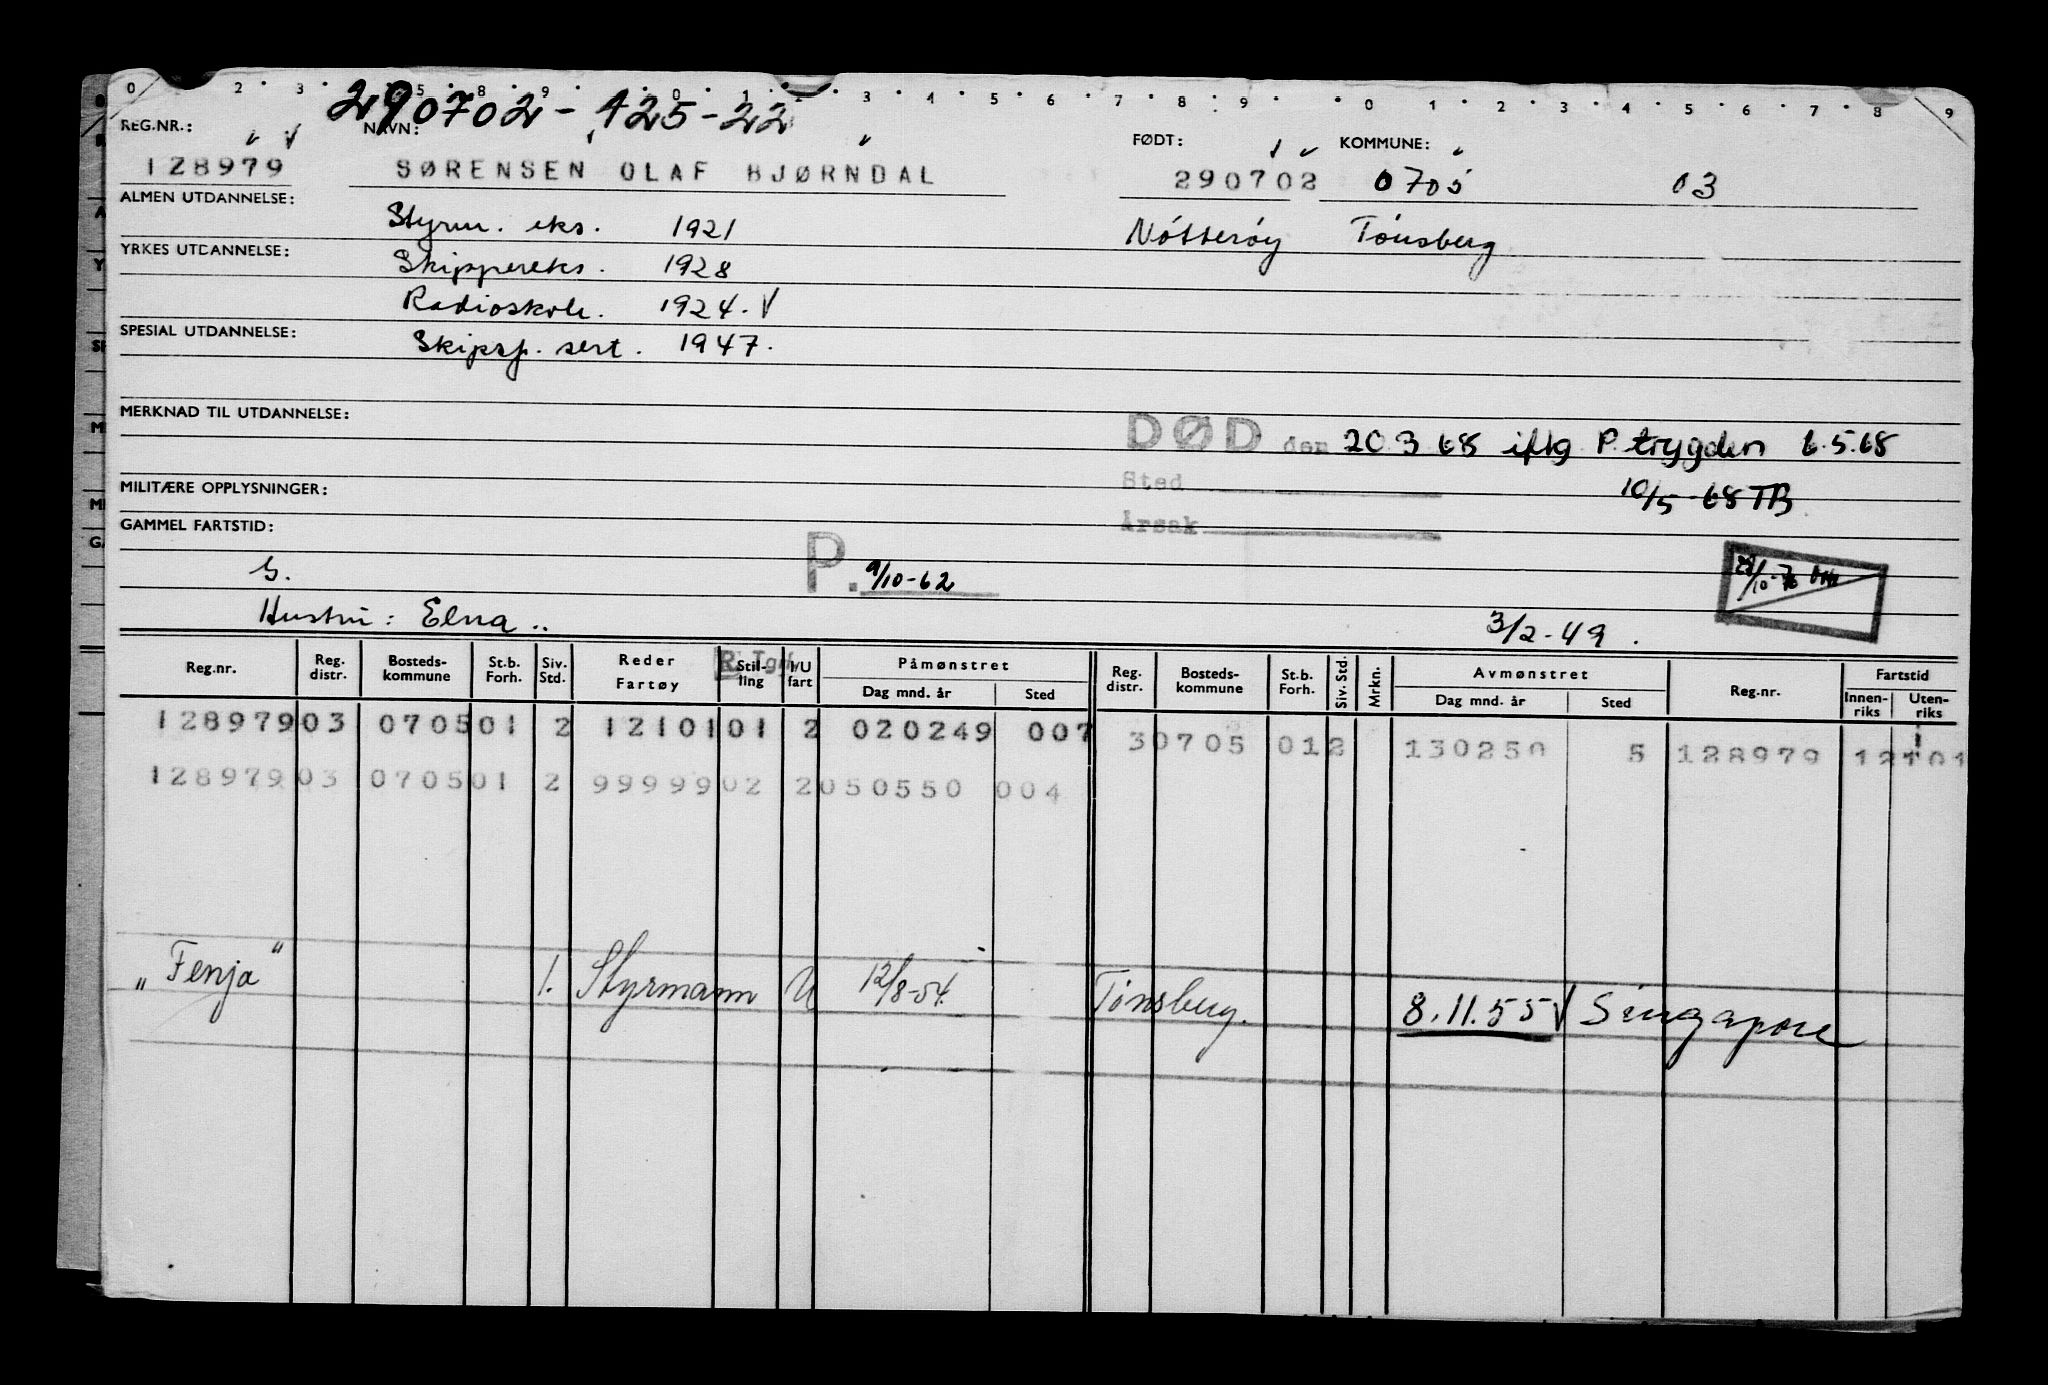 0 2 3 5 8 9 0 1 3 4 5 6 7 8 9 0 1 2 3 4 5 6 7 8 9
290702-125-22
REG.NR.: NAVN: FØDT: KOMMUNE:
128979 SØRENSEN OLAF BJØRNDAL 290702 0705 03
ALMEN UTDANNELSE: Styrm. eks. 1921 Nötteröy Tönsberg
YRKES UTDANNELSE: Skippereks. 1928
Radioskole. 1924. V
SPESIAL UTDANNELSE: Skipsf. sert. 1947.
MERKNAD TIL UTDANNELSE:
DØD den 20.3.68 iflg P.trygden 6.5.68
MILITÆRE OPPLYSNINGER: Sted 10/5-68 TB
GAMMEL FARTSTID: Årsak
G. P. 9/10-62
Hustru: Elna.. 3/2-49.
Reg.nr. Reg. distr. Bosteds-kommune St.b. Forh. Siv. Std. Reder Fartøy Stil-ling I/U fart Påmønstret Dag mnd. år Sted Reg. distr. Bosteds-kommune St.b. Forh. Siv. Std. Mrkn. Avmønstret Dag mnd. år Sted Reg.nr. Fartstid Innen-riks Uten-riks
128979 03 0705 01 2 12101 01 2 020249 007 3 0705 01 2 130250 5 128979 12101
128979 03 0705 01 2 99999 02 2 050550 004
"Fenja" 1. Styrmann U 12/8-54. Tönsberg. 8.11.55 V Singapore